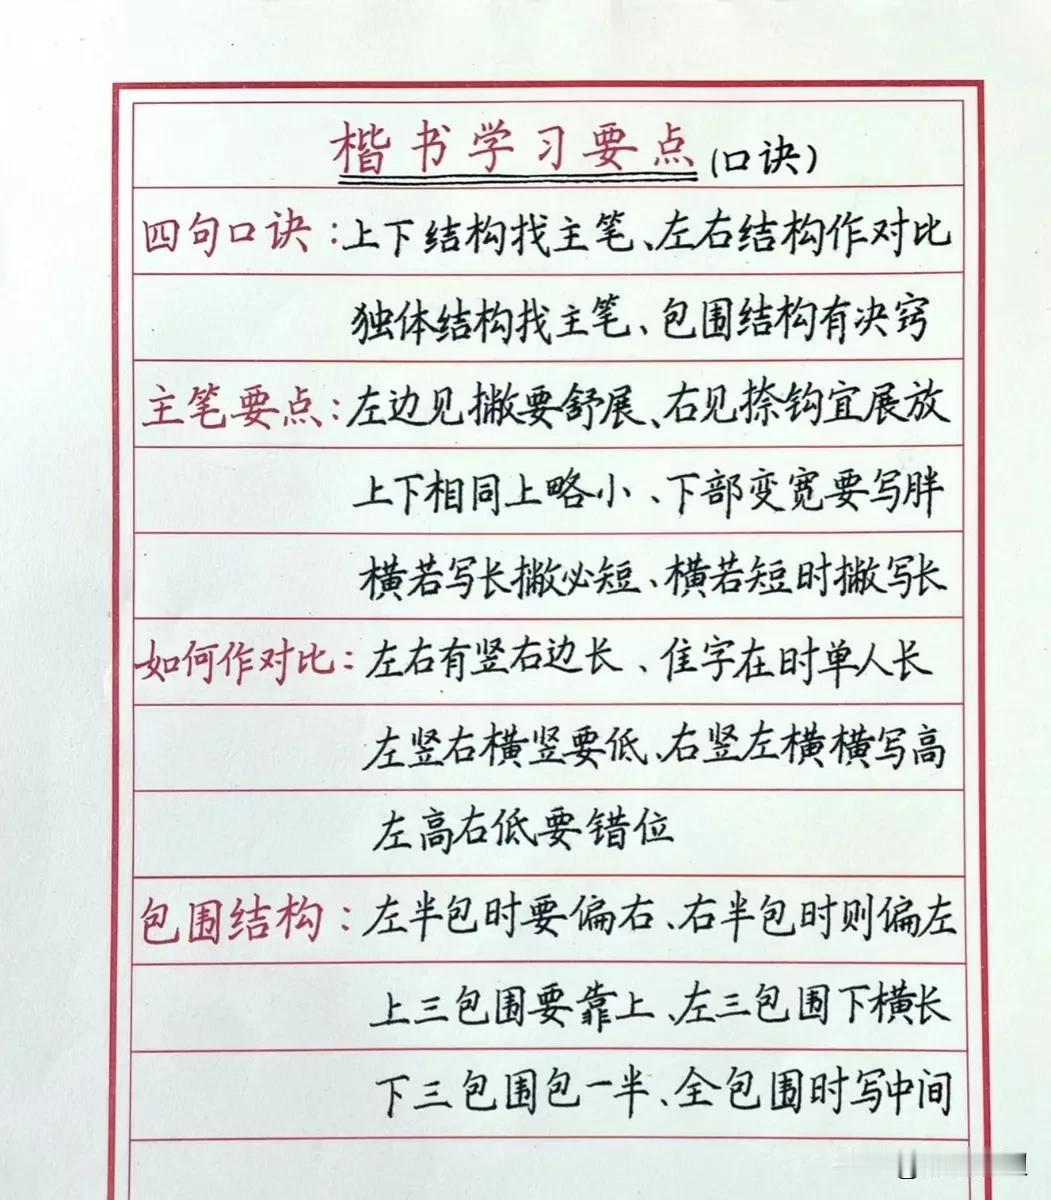 楷书学习要点(口诀)
四句口诀:上下结构找主笔、左右结构作对比
独体结构找主笔、包围结构有决窍
主笔要点:左边见撇要舒展、右见捺钩宜展放
上下相同上略小、下部变宽要写胖
横若写长撇必短、横若短时撇写长
如何作对比:左右有竖右边长、隹字在时单人长
左竖右横竖要低、右竖左横横写高
左高右低要错位
包围结构:左半包时要偏右、右半包时则偏左
上三包围要靠上、左三包围下横长
下三包围包一半、全包围时写中间